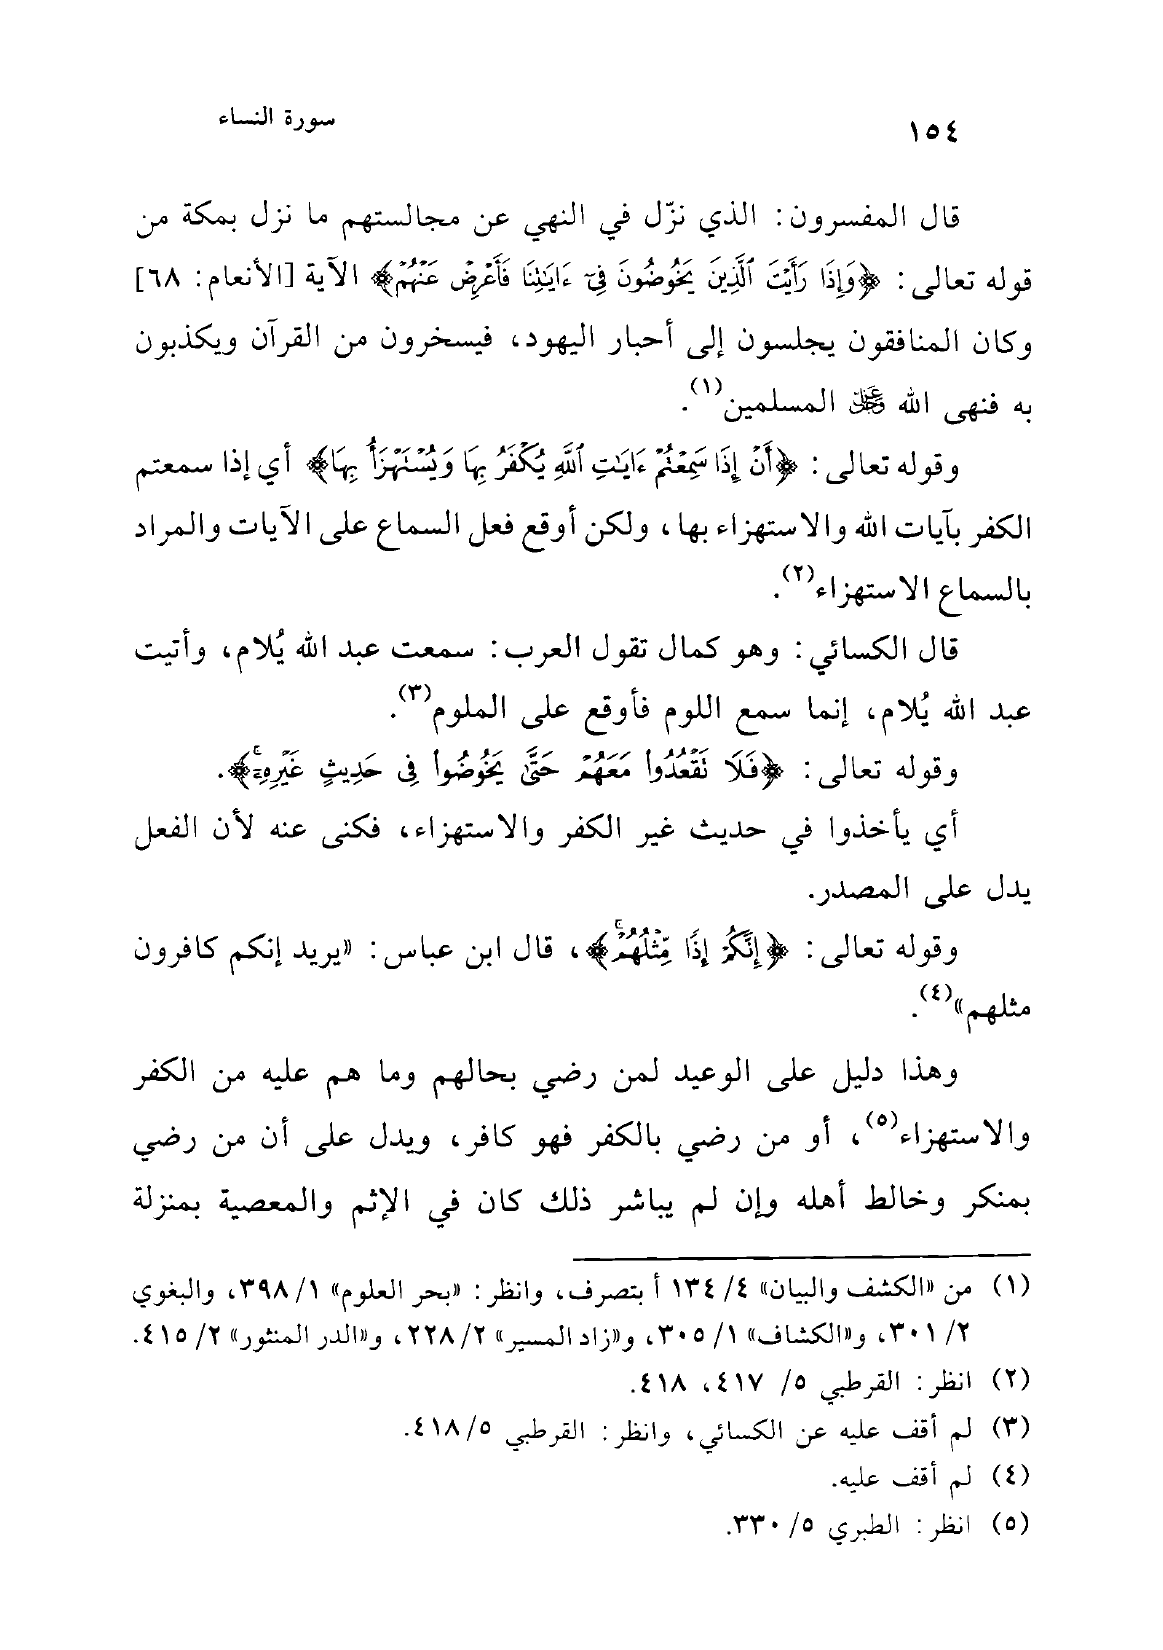 ١٥٤
سورة النساء
قال المفسرون: الذي نزّل في النهي عن مجالستهم ما نزل بمكة من
قوله تعالى: ﴿وَإِذَا رَأَيْتَ ٱلَّذِينَ يَخُوضُونَ فِىٓ ءَايَٰتِنَا فَأَعْرِضْ عَنْهُمْ﴾ الآية [الأنعام: ٦٨]
وكان المنافقون يجلسون إلى أحبار اليهود، فيسخرون من القرآن ويكذبون
به فنهى الله عز وجل المسلمين(١).
وقوله تعالى: ﴿أَنْ إِذَا سَمِعْتُمْ ءَايَٰتِ ٱللَّهِ يُكْفَرُ بِهَا وَيُسْتَهْزَأُ بِهَا﴾ أي إذا سمعتم
الكفر بآيات الله والاستهزاء بها، ولكن أوقع فعل السماع على الآيات والمراد
بالسماع الاستهزاء(٢).
قال الكسائي: وهو كمال تقول العرب: سمعت عبد الله يُلام، وأتيت
عبد الله يُلام، إنما سمع اللوم فأوقع على الملوم(٣).
وقوله تعالى: ﴿فَلَا نَقْعُدُوا۟ مَعَهُمْ حَتَّىٰ يَخُوضُوا۟ فِى حَدِيثٍ غَيْرِهِۦٓ ۚ﴾.
أي يأخذوا في حديث غير الكفر والاستهزاء، فكنى عنه لأن الفعل
يدل على المصدر.
وقوله تعالى: ﴿إِنَّكُمْ إِذًا مِّثْلُهُمْ ۗ﴾، قال ابن عباس: «يريد إنكم كافرون
مثلهم»(٤).
وهذا دليل على الوعيد لمن رضي بحالهم وما هم عليه من الكفر
والاستهزاء(٥)، أو من رضي بالكفر فهو كافر، ويدل على أن من رضي
بمنكر وخالط أهله وإن لم يباشر ذلك كان في الإثم والمعصية بمنزلة
(١) من «الكشف والبيان» ٤/ ١٣٤ أ بتصرف، وانظر: «بحر العلوم» ١/ ٣٩٨، والبغوي
٢/ ٣٠١، و«الكشاف» ١/ ٣٠٥، و«زاد المسير» ٢/ ٢٢٨، و«الدر المنثور» ٢/ ٤١٥.
(٢) انظر: القرطبي ٥/ ٤١٧، ٤١٨.
(٣) لم أقف عليه عن الكسائي، وانظر: القرطبي ٥/ ٤١٨.
(٤) لم أقف عليه.
(٥) انظر: الطبري ٥/ ٣٣٠.